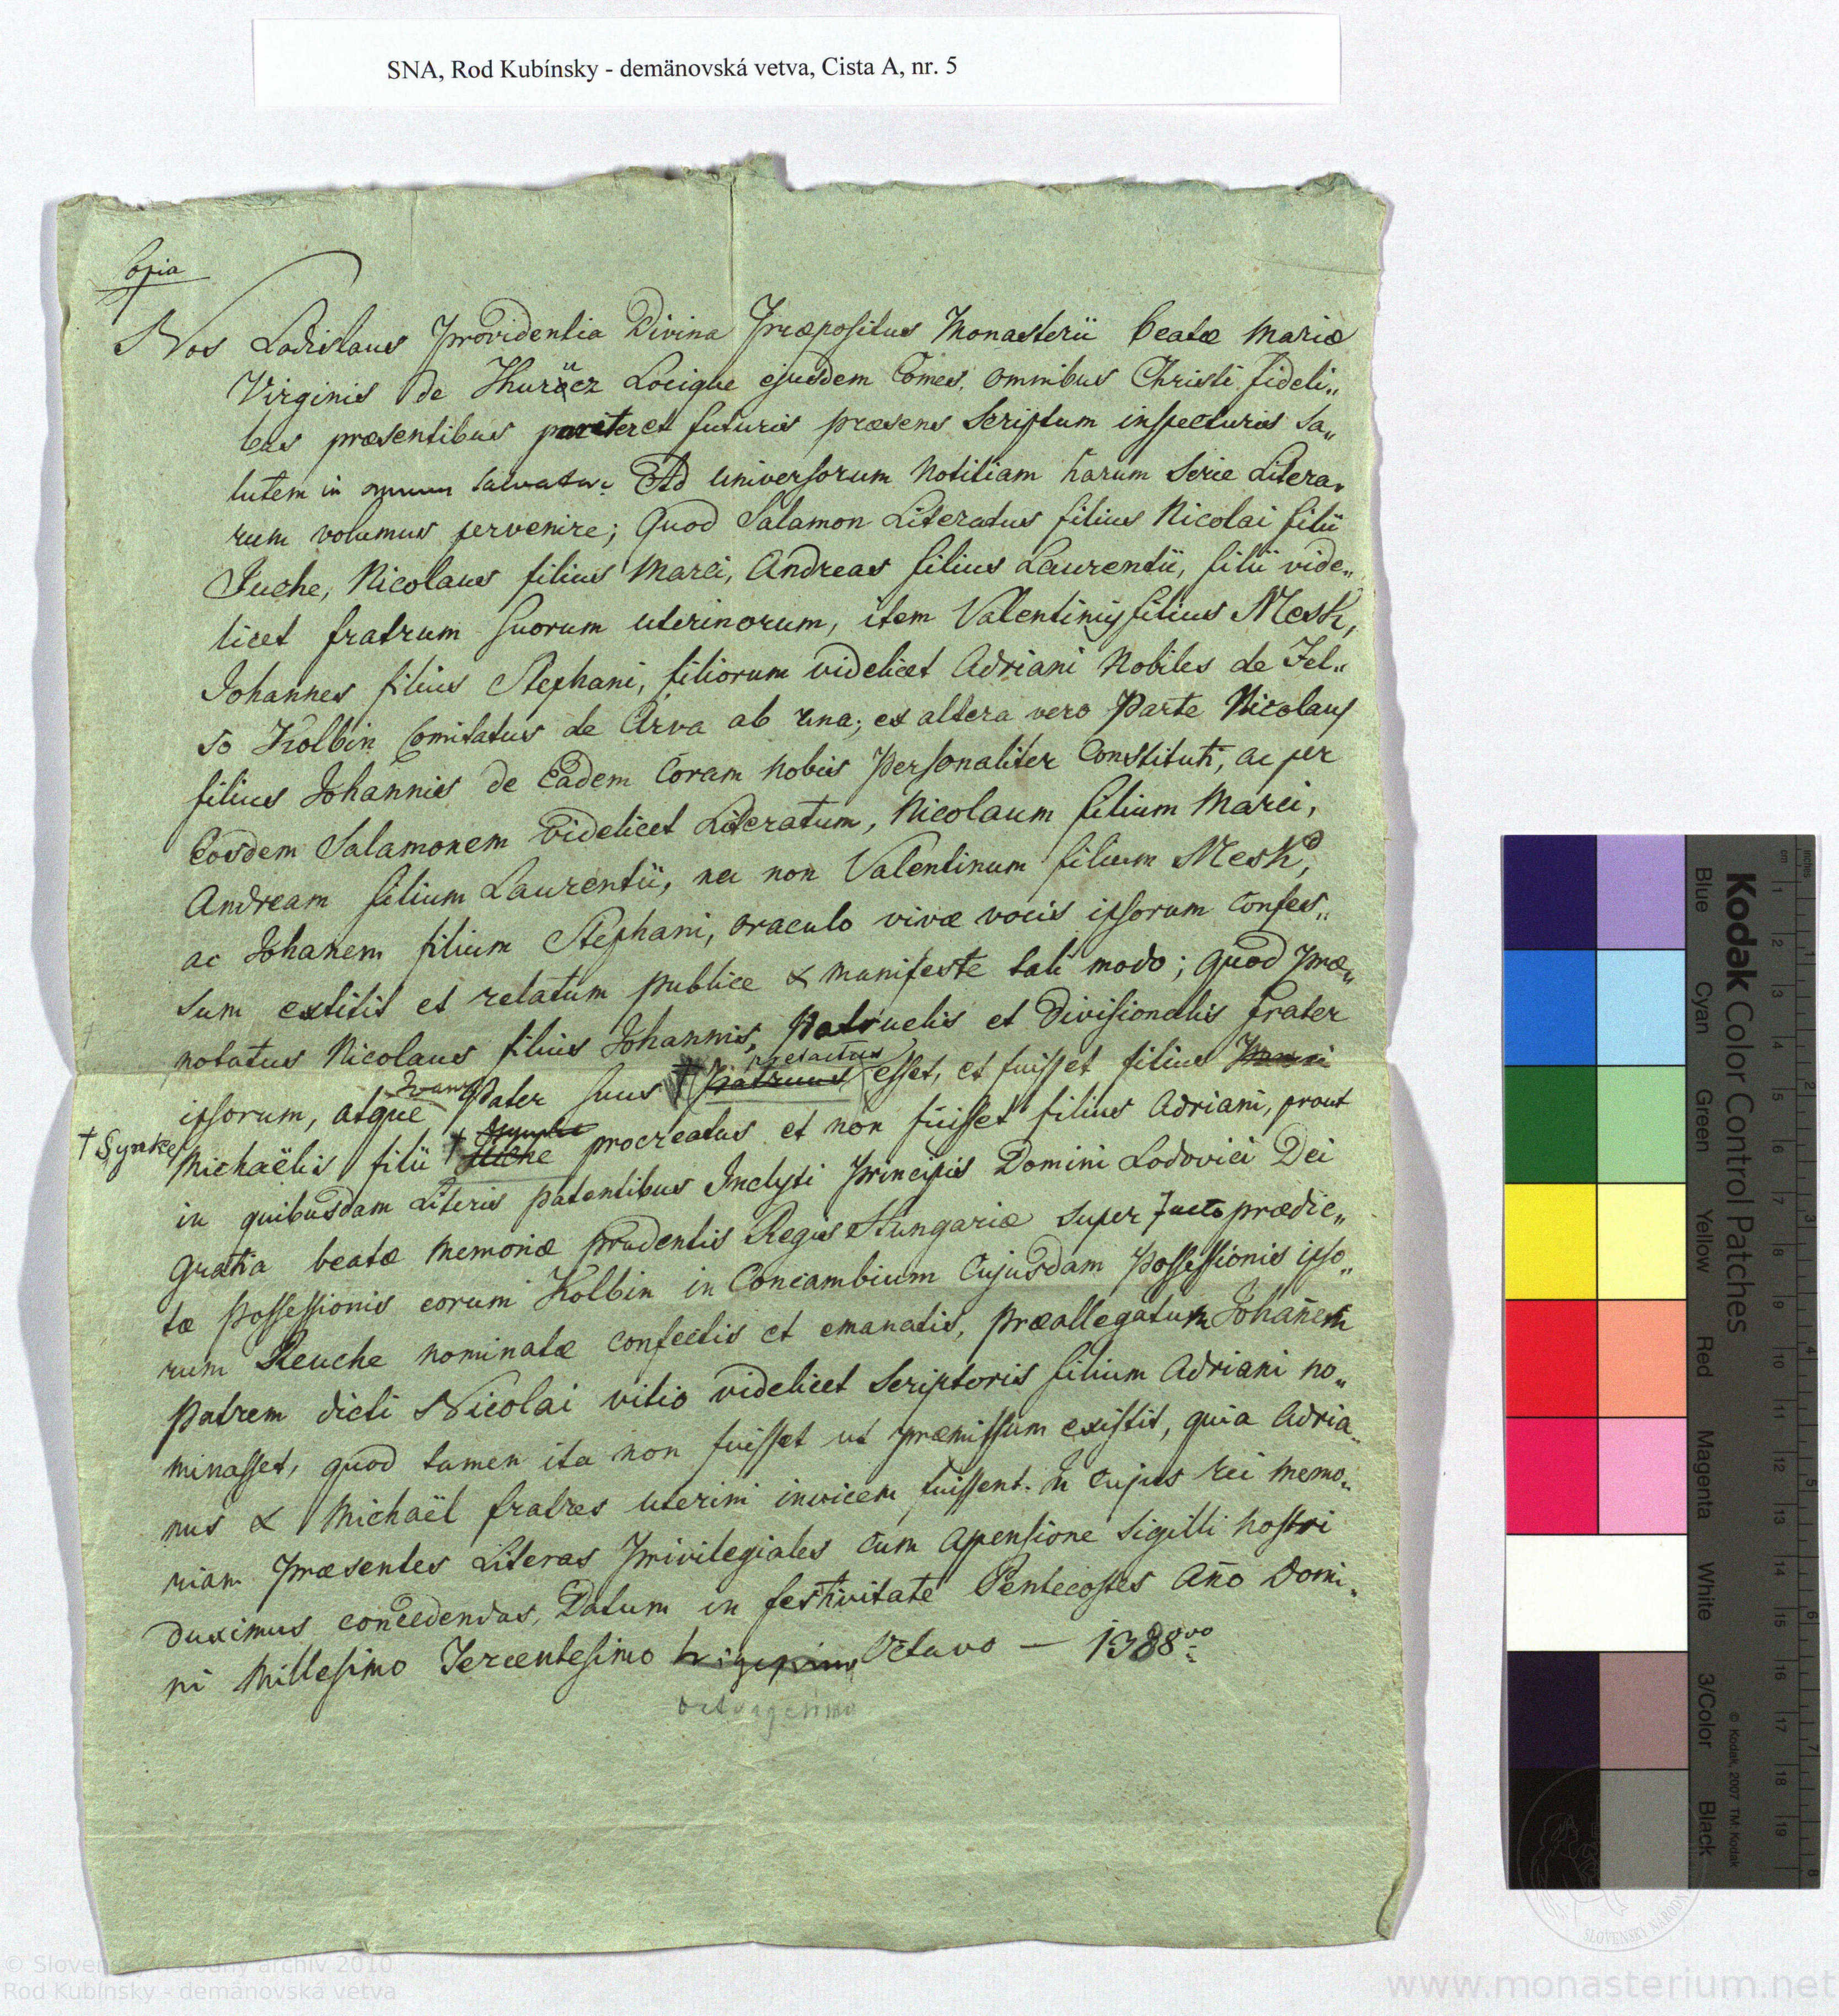 SNA, Rod Kubínsky - demänovská vetva, Cista A, nr. 5
Copia
Nos Ladislaus Providentia Divina Præpositus Monasterii Beatæ Mariæ
Virginis de Thurücz Locique ejusdem Comes, omnibus Christi fideli„
bus præsentibus pariter et futuris præsens Scriptum inspecturis Sa„
lutem in omnium Salvatore. Ad universorum Notitiam harum Serie Litera„
rum volumus pervenire; Quod Salamon Literatus filius Nicolai filii
Juche, Nicolaus filius Marci, Andreas filius Laurentii, filii vide„
licet fratrum Suorum uterinorum, item Valentinus filius Mesk,
Johannes filius Stephani, filiorum videlicet Adriani Nobiles de Fel„
so Kolbin Comitatus de Arva ab una; ex altera vero Parte Nicolaus
filius Johannis de Eadem Coram Nobis Personaliter Constituti, ac per
Eosdem Salamonem videlicet Literatum, Nicolaum filium Marci,
Andream filium Laurentii, nec non Valentinum filium Mesk,
ac Johanem filium Stephani, oraculo vivæ vocis ipsorum Confes„
sum extitit et relatum publice & manifeste tali modo; Quod Præ„
notatus Nicolaus filius Johannis, Patruelis et Divisionalis Frater
ipsorum, atque Pater suus † patruus esset, et fuisset filius
† Synke
Michaëlis filii † Juche procreatus et non fuisset filius Adriani, prout
in quibusdam Literis patentibus Inclyti Principis Domini Lodovici Dei
Gratia beatæ Memoriæ prudentis Regis Hungariæ Super facto prædic„
tæ Possessionis eorum Kolbin in Concambium Cujusdam Possessionis ipso„
rum Reuche nominatæ confectis et emanatis, præallegatum Johañem
Patrem dicti Nicolai vitio videlicet Scriptoris filium Adriani no„
minasset, quod tamen ita non fuisset ut præmissum existit, quia Adria„
nus & Michaël fratres uterini invicem fuissent. In Cujus rei Memo„
riam Præsentes Literas Privilegiales Cum Apensione Sigilli Nostri
Duximus concedendas, Datum in festivitate Pentecostes Año Domi„
ni Millesimo Tercentesimo Octavo — 1388vo
octvagesimo
© Slovenský národný archív 2010
Rod Kubínsky - demänovská vetva
www.monasterium.net
Kodak Color Control Patches
Blue Cyan Green Yellow Red Magenta White 3/Color Black
© Kodak, 2007 TM: Kodak
inches 1 2 3 4 5 6 7 8
cm 1 2 3 4 5 6 7 8 9 10 11 12 13 14 15 16 17 18 19
SLOVENSKÝ NÁRODN